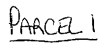 PARCEL 1